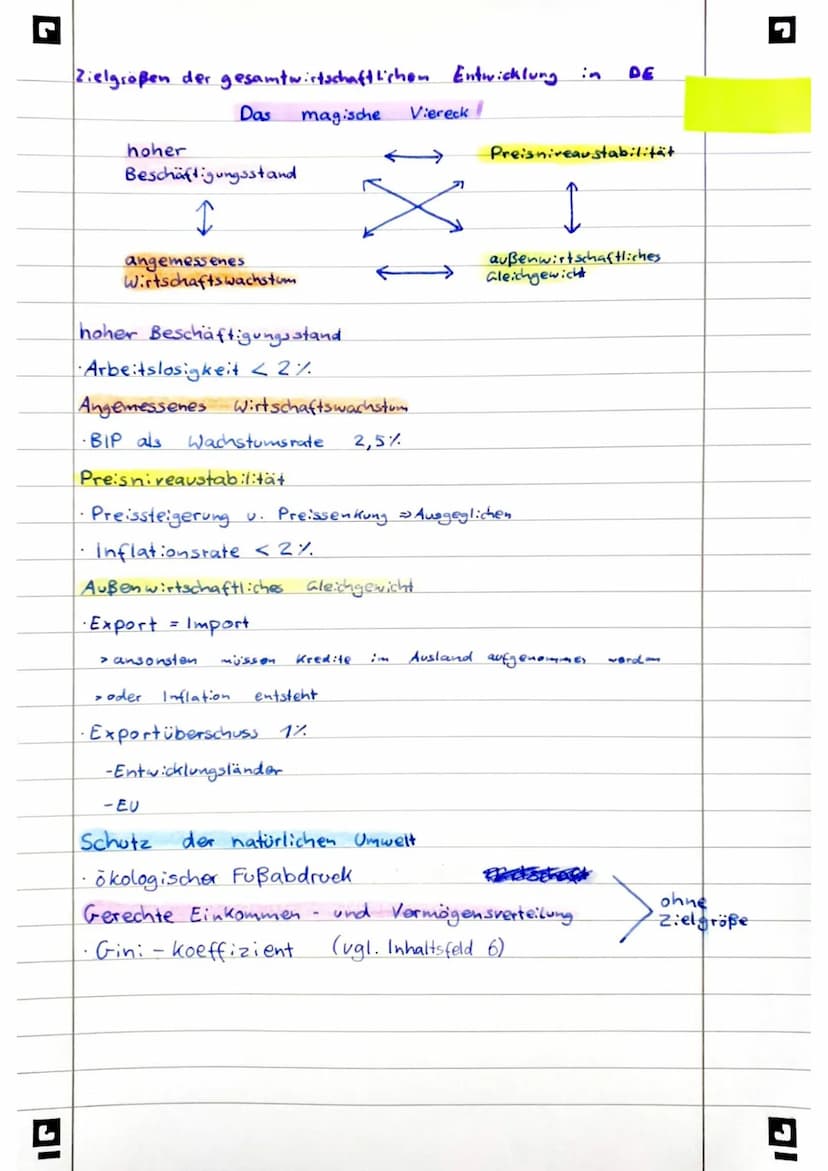 Zielgrößen der gesamtwirtschaftlichen Entwicklung in DE
Das magische Viereck!
hoher Beschäftigungsstand
Preisniveaustabilität
angemessenes Wirtschaftswachstum
außenwirtschaftliches Gleichgewicht
hoher Beschäftigungsstand
· Arbeitslosigkeit < 2%
Angemessenes Wirtschaftswachstum
· BIP als Wachstumsrate 2,5%
Preisniveaustabilität
· Preissteigerung u. Preissenkung ⇒ Ausgeglichen
· Inflationsrate < 2%
Außenwirtschaftliches Gleichgewicht
· Export = Import
> ansonsten müssen Kredite im Ausland aufgenommen werden
> oder Inflation entsteht
· Exportüberschuss 1%
- Entwicklungsländer
- EU
Schutz der natürlichen Umwelt
· ökologischer Fußabdruck
Gerechte Einkommen- und Vermögensverteilung
· Gini-koeffizient (vgl. Inhaltsfeld 6)
ohne
Zielgröße